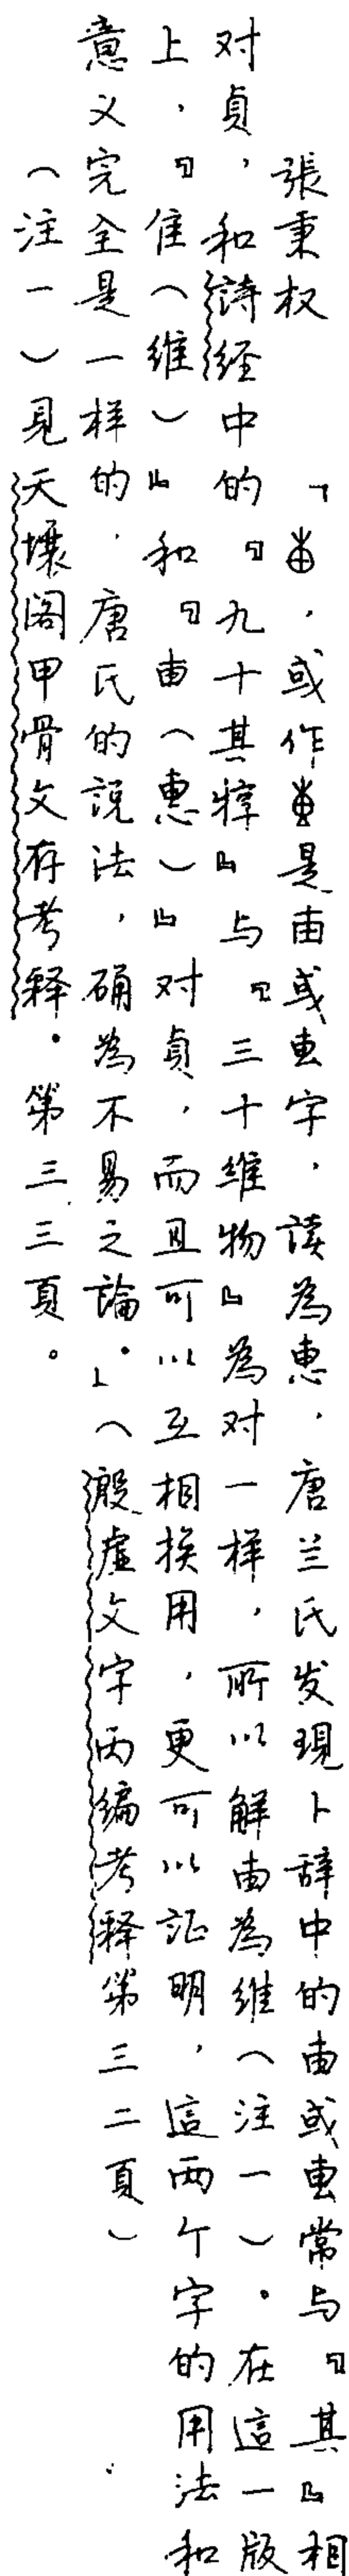 張秉权　「𠧪，或作叀是甶或叀字，讀為惠，唐兰氏发現卜辞中的甶或叀常与『其』相
对貞，和詩经中的『九十其犉』与『三十維物』為对一样，所以解甶為維（注一）。在這一版
上，『隹（維）』和『甶（惠）』对貞，而且可以互相换用，更可以証明，這两个字的用法和
意义完全是一样的，唐氏的說法，确為不易之論。」（殷虚文字丙编考释第三二頁）
（注一）見天壤阁甲骨文存考释．第三三頁。